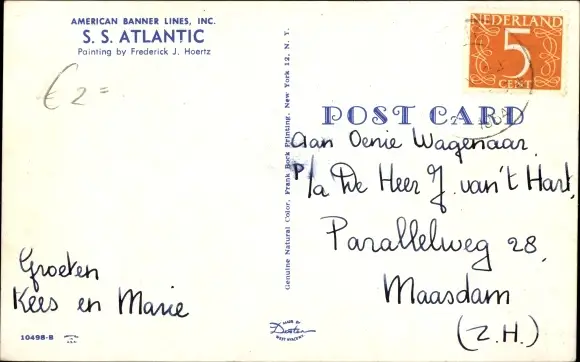 AMERICAN BANNER LINES, INC.
S. S. ATLANTIC
Painting by Frederick J. Hoertz
€ 2=
NEDERLAND
5
CENT
POST CARD
Genuine Natural Color, Frank Bock Printing, New York 12, N. Y.
Aan Oenie Wagenaar
P/a De Heer J. van't Hart,
Parallelweg 28,
Maasdam
(Z.H.)
Groeten
Kees en Marie
10498-B
MADE BY
Dexter
WEST NYACK NY